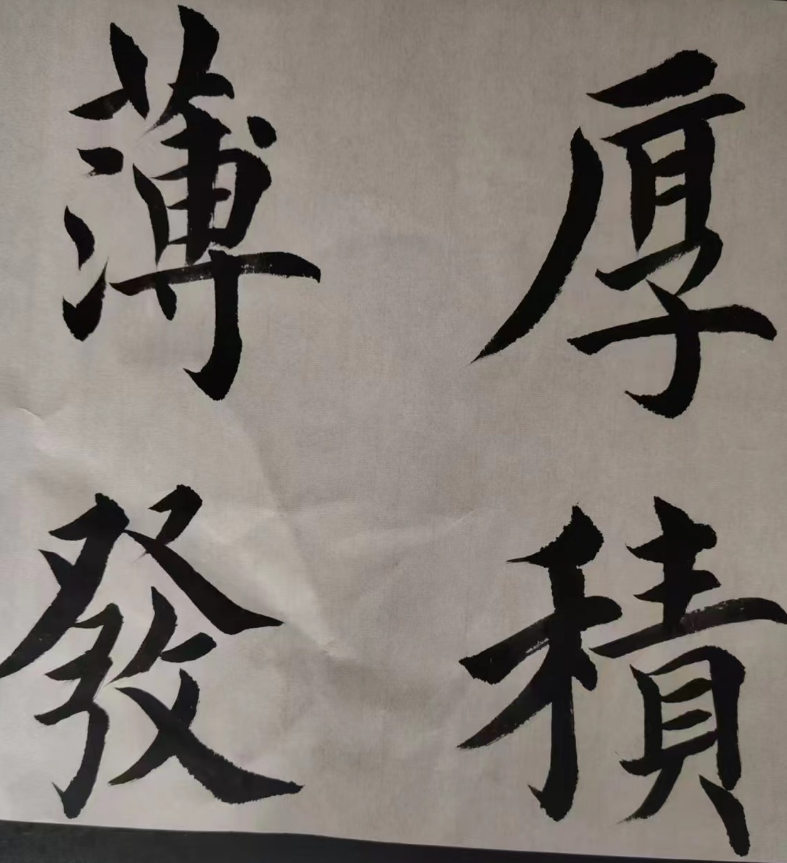 厚積
薄發